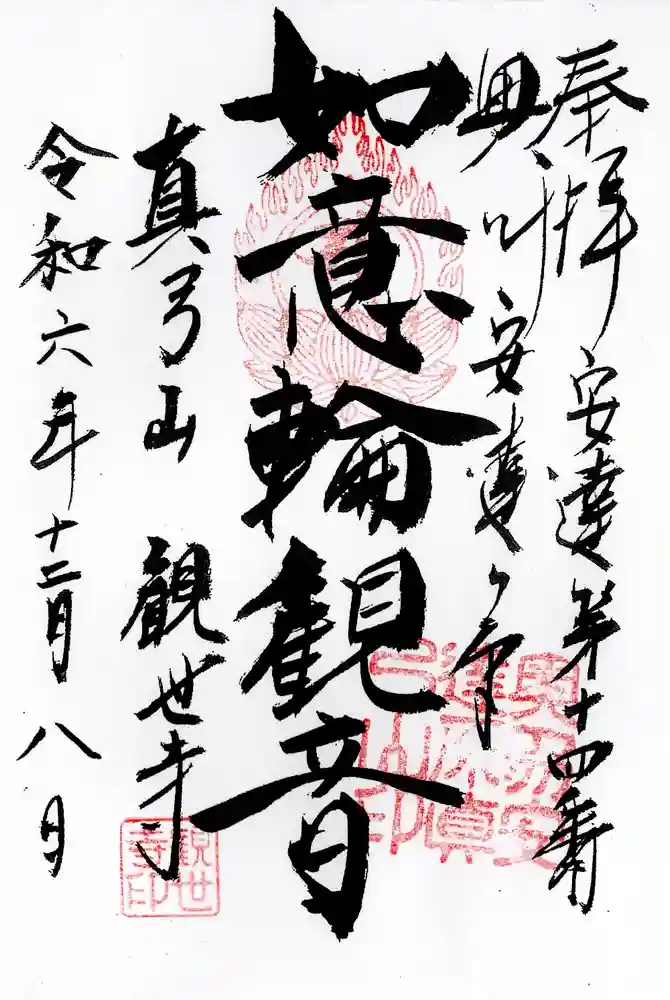 奉拝 安達第十四番
奥州安達ヶ原
如意輪観音
真弓山 観世寺
令和六年十二月八日
奥州安
達原真
弓山印
観世
寺印